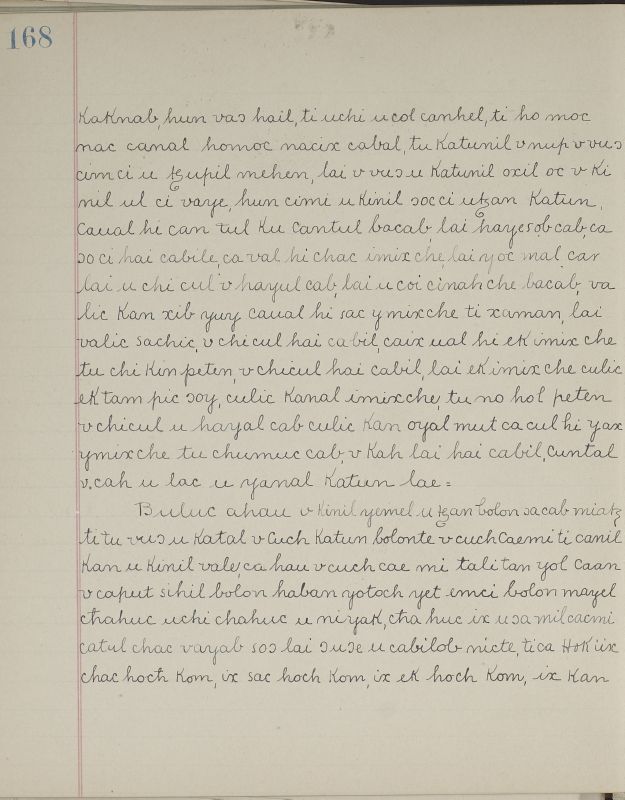 168
KaKnab, hun vaɔ hail, ti uchi u col canhel, ti ho moc
nac canal homoc nacix cabal, tu Katunil v nup v vuɔ
cimci u ꜩupil mehen, lai v vuɔ u Katunil oxil oc v Ki
nil ul ci vaye, hun cimi u Kinil ɔocci uꜩan Katun,
Caual hi can tul Ku Cantul bacab, lai hayesob cab, ca
ɔo ci hai cabile, ca val hi chac imix che, lai yoc mal car
lai u chi cul v hayul cab, lai u coi cinah che bacab, va
lic Kan xib yuy caual hi sac ymixche ti xaman, lai
valic sachic, v chicul hai cabil, caix ual hi eK imix che
tu chi Kin peten, v chicul hai cabil, lai eK imix che culic
eK tam pic ɔoy, culic Kanal imixche, tu no hol peten
v chicul u hayal cab culic Kan oyal mut ca cul hi yax
ymixche tu chumuc cab, v Kah lai hai cabil, Cuntal
v. cah u lac u yanal Katun lae =
Buluc ahau v Kinil yemel u ꜩan bolon ɔacab miaꜩ
ti tu vuɔ u Katal v Cuch Katun bolonte v cuch Caemi ti canil
Kan u Kinil vale, ca hau v cuch cae mi tali tan yol Caan
v caput sihil bolon haban yotoch yet emci bolon mayel
chahuc uchi chahuc u ni yaK, cha huc ix u ɔa mil caemi
catul chac vayab soɔ lai ɔuɔe u cabilob nicte, tica HoK iix
chac hoch Kom, ix sac hoch Kom, ix eK hoch Kom, ix Kan